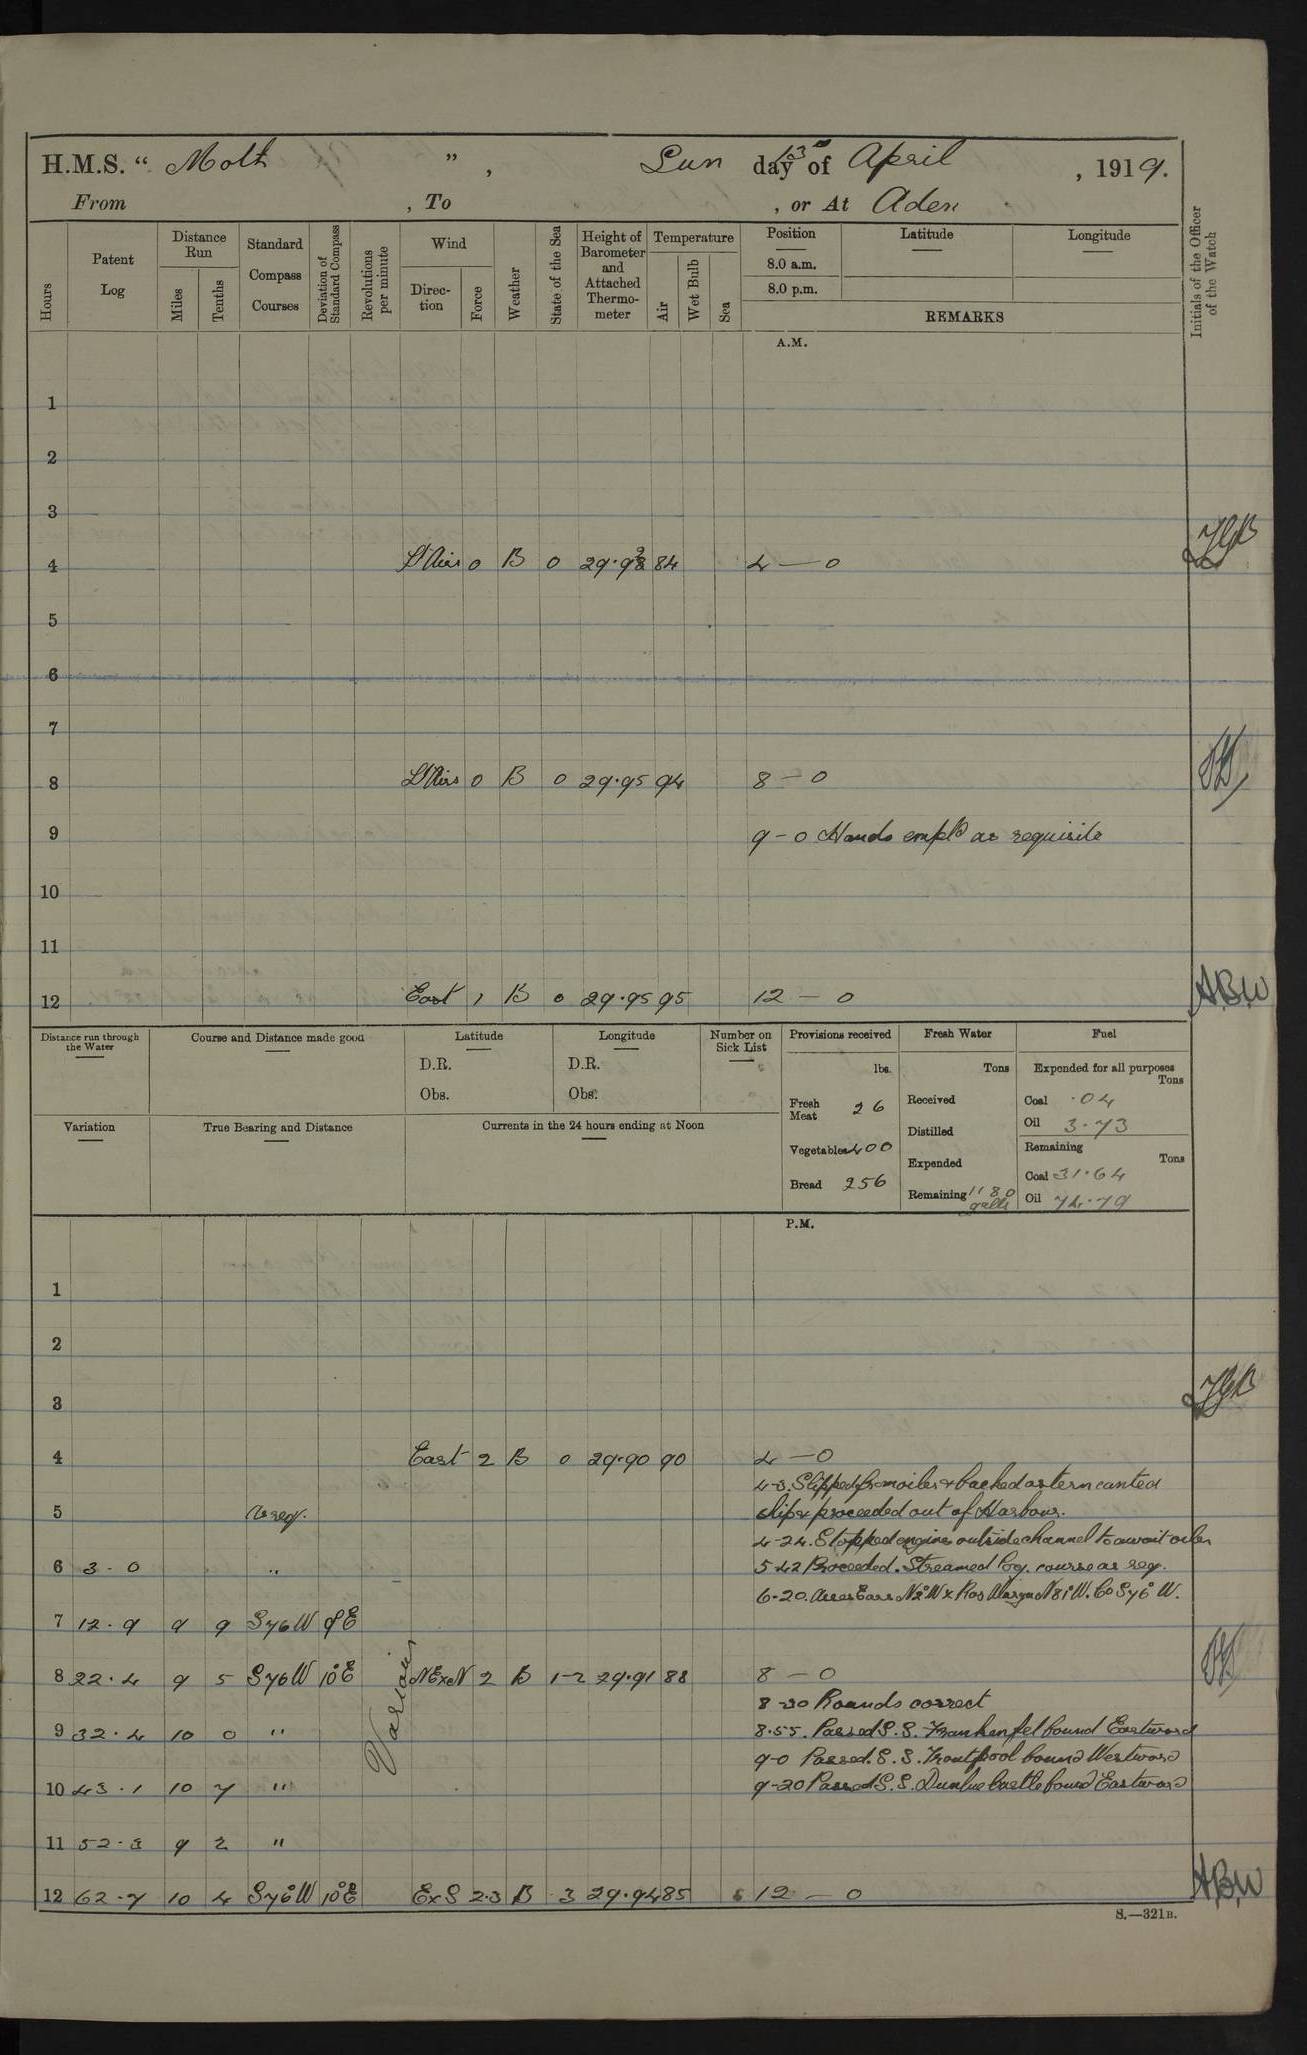 H.M.S. “ Moth ”, Sun day 13th of April , 1919.
From , To , or At Aden
Hours
Patent Log
Distance Run
Miles
Tenths
Standard Compass Courses
Deviation of Standard Compass
Revolutions per minute
Wind
Direction
Force
Weather
State of the Sea
Height of Barometer and Attached Thermometer
Temperature
Air
Wet Bulb
Sea
Position
8.0 a.m.
8.0 p.m.
Latitude
Longitude
REMARKS
Initials of the Officer of the Watch
A.M.
1
2
3
4 Lt Airs 0 B 0 29.93 84 4 — 0
5
6
7
8 Lt Airs 0 B 0 29.95 94 8 — 0
9 9 - 0 Hands empld as requisite
10
11
12 East 1 B 0 29.95 95 12 — 0 A.B.W
Distance run through the Water
Course and Distance made good
Latitude
D.R.
Obs.
Longitude
D.R.
Obs.
Number on Sick List
Provisions received
lbs.
Fresh Meat 26
Vegetables 400
Bread 256
Fresh Water
Tons
Received
Distilled
Expended
Remaining 1180 galls
Fuel
Expended for all purposes
Tons
Coal .04
Oil 3.73
Remaining
Tons
Coal 31.64
Oil 74.79
Variation
True Bearing and Distance
Currents in the 24 hours ending at Noon
P.M.
1
2
3
4 East 2 B 0 29.90 90 4 — 0
4-3. Slipped from oiler & backed astern canted
5 As req. ship & proceeded out of Harbour.
4-24. Stopped engines outside channel to await oiler
6 3.0 " 5-42 Proceeded. Streamed log. course as req.
6-20. Ears N2°W x Ras N81°W. Co S76°W.
7 12.9 9 9 S76W 9°E
8 22.4 9 5 S76W 10°E Various NExN 2 B 1-2 29.91 88 8 — 0
8-30 Rounds correct
9 32.4 10 0 " 8.55. Passed S.S. Frankenfel bound Eastward
9-0 Passed S.S. Troutpool bound Westward
10 43.1 10 7 " 9-20 Passed S.S. Dunluce Castle bound Eastward
11 52.3 9 2 "
12 62.7 10 4 S76°W 10°E ExS 2.3 B 3 29.94 85 12 — 0 A.B.W
S.—321B.